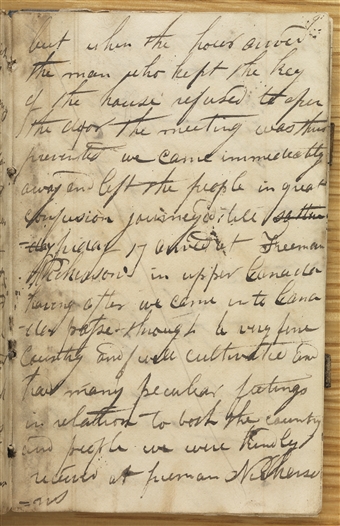 but when the hour arived
the man who kept the key
of the house refused to open
the door the meeting was thus
prevented we came immediatly
away and left the people in great
confusion journeyed till
friday 17 arived at Freeman
Nickersons in upper Canada
having after we came into Cana
-da passed through a very fine
country and well cultivated and
had many peculiar feelings
in relation to both the country
and people we were kindly
received at freeman Nickerso
=ns